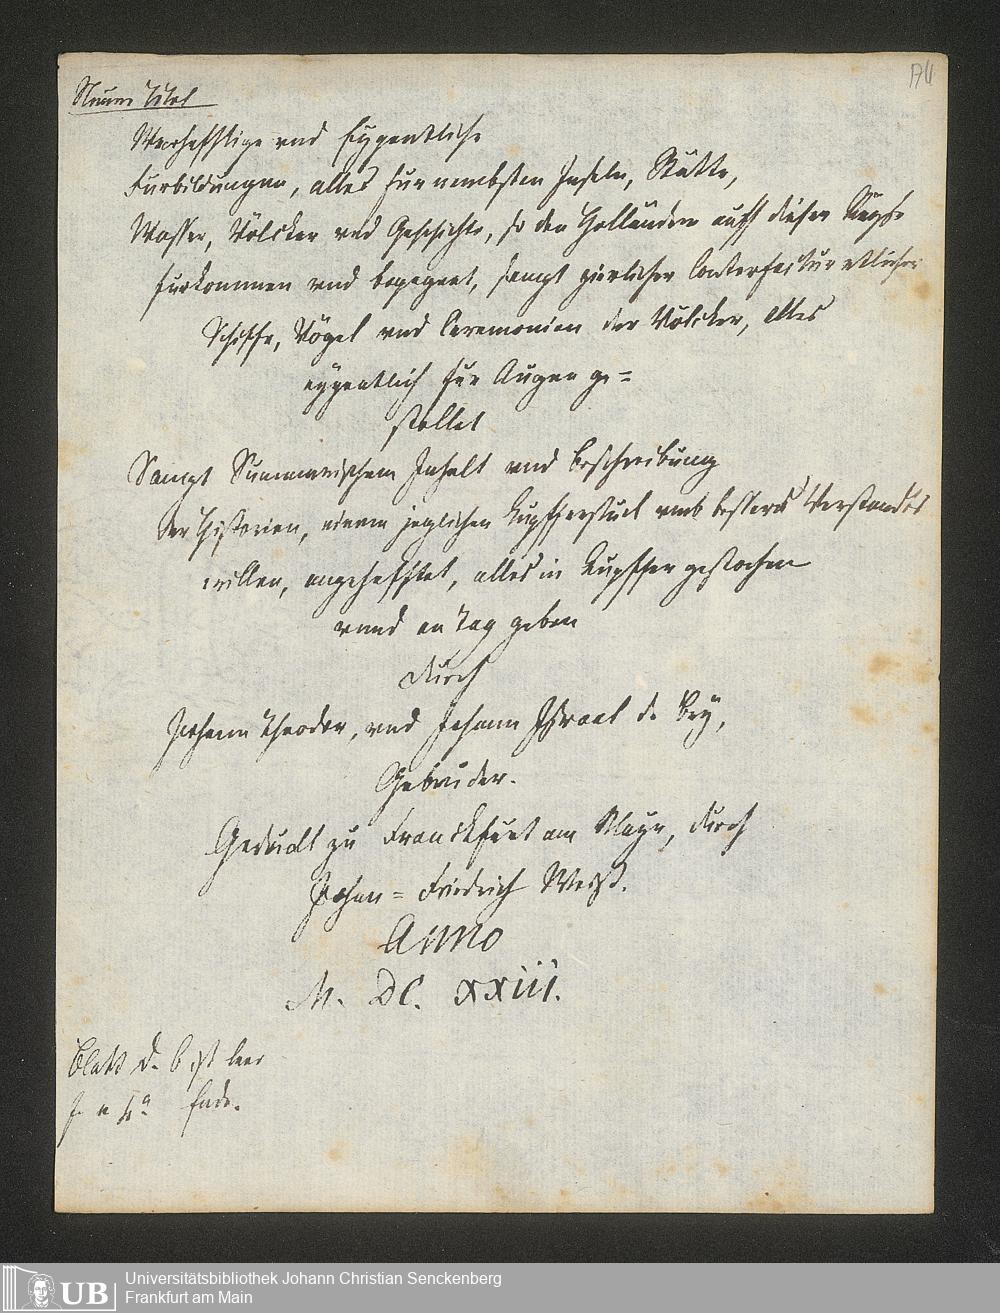 Neuer Titel
Warhafftige vnd Eygentliche
Furbildungen, alles furnembsten Inseln, Stätte,
Wasser, Völcker vnd Geschichte, so den Holländern auff dieser Reyse
furkommen vnd begegnet, sampt zierlicher Conterfeitur etlicher
Schiffe, Vögel vnd Ceremonien der Völcker, alles
eygentlich fur Augen ge=
stellet
Sampt Summarischem Inhalt vnd Beschreibung
der Historien, einem jeglichen Kupfferstuck vmb bessers Verstandes
willen, angehefftet, alles in Kupffer gestochen
vnnd an Tag geben
durch
Johann Theodor, vnd Johann Israel de Bry,
Gebruder.
Gedruckt zu Franckfurt am Mayn, durch
Johan = Friedrich Weisß.
Anno
M. DC. XXIII.
Blatt d. 6 ist leer
Ende.
UB
Universitätsbibliothek Johann Christian Senckenberg
Frankfurt am Main